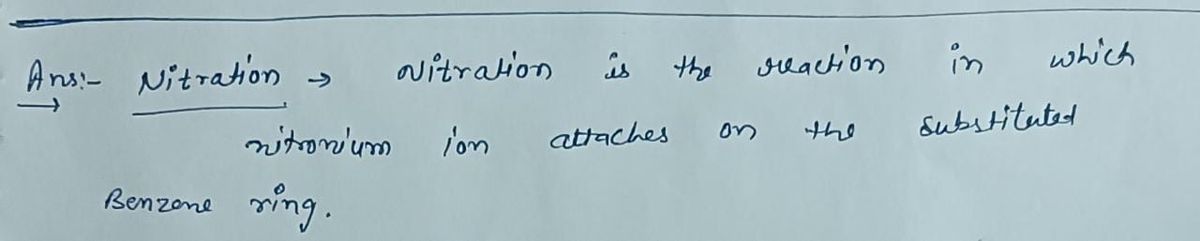 Ans:- Nitration → Nitration is the reaction in which
nitronium ion attaches on the substituted
Benzene ring.